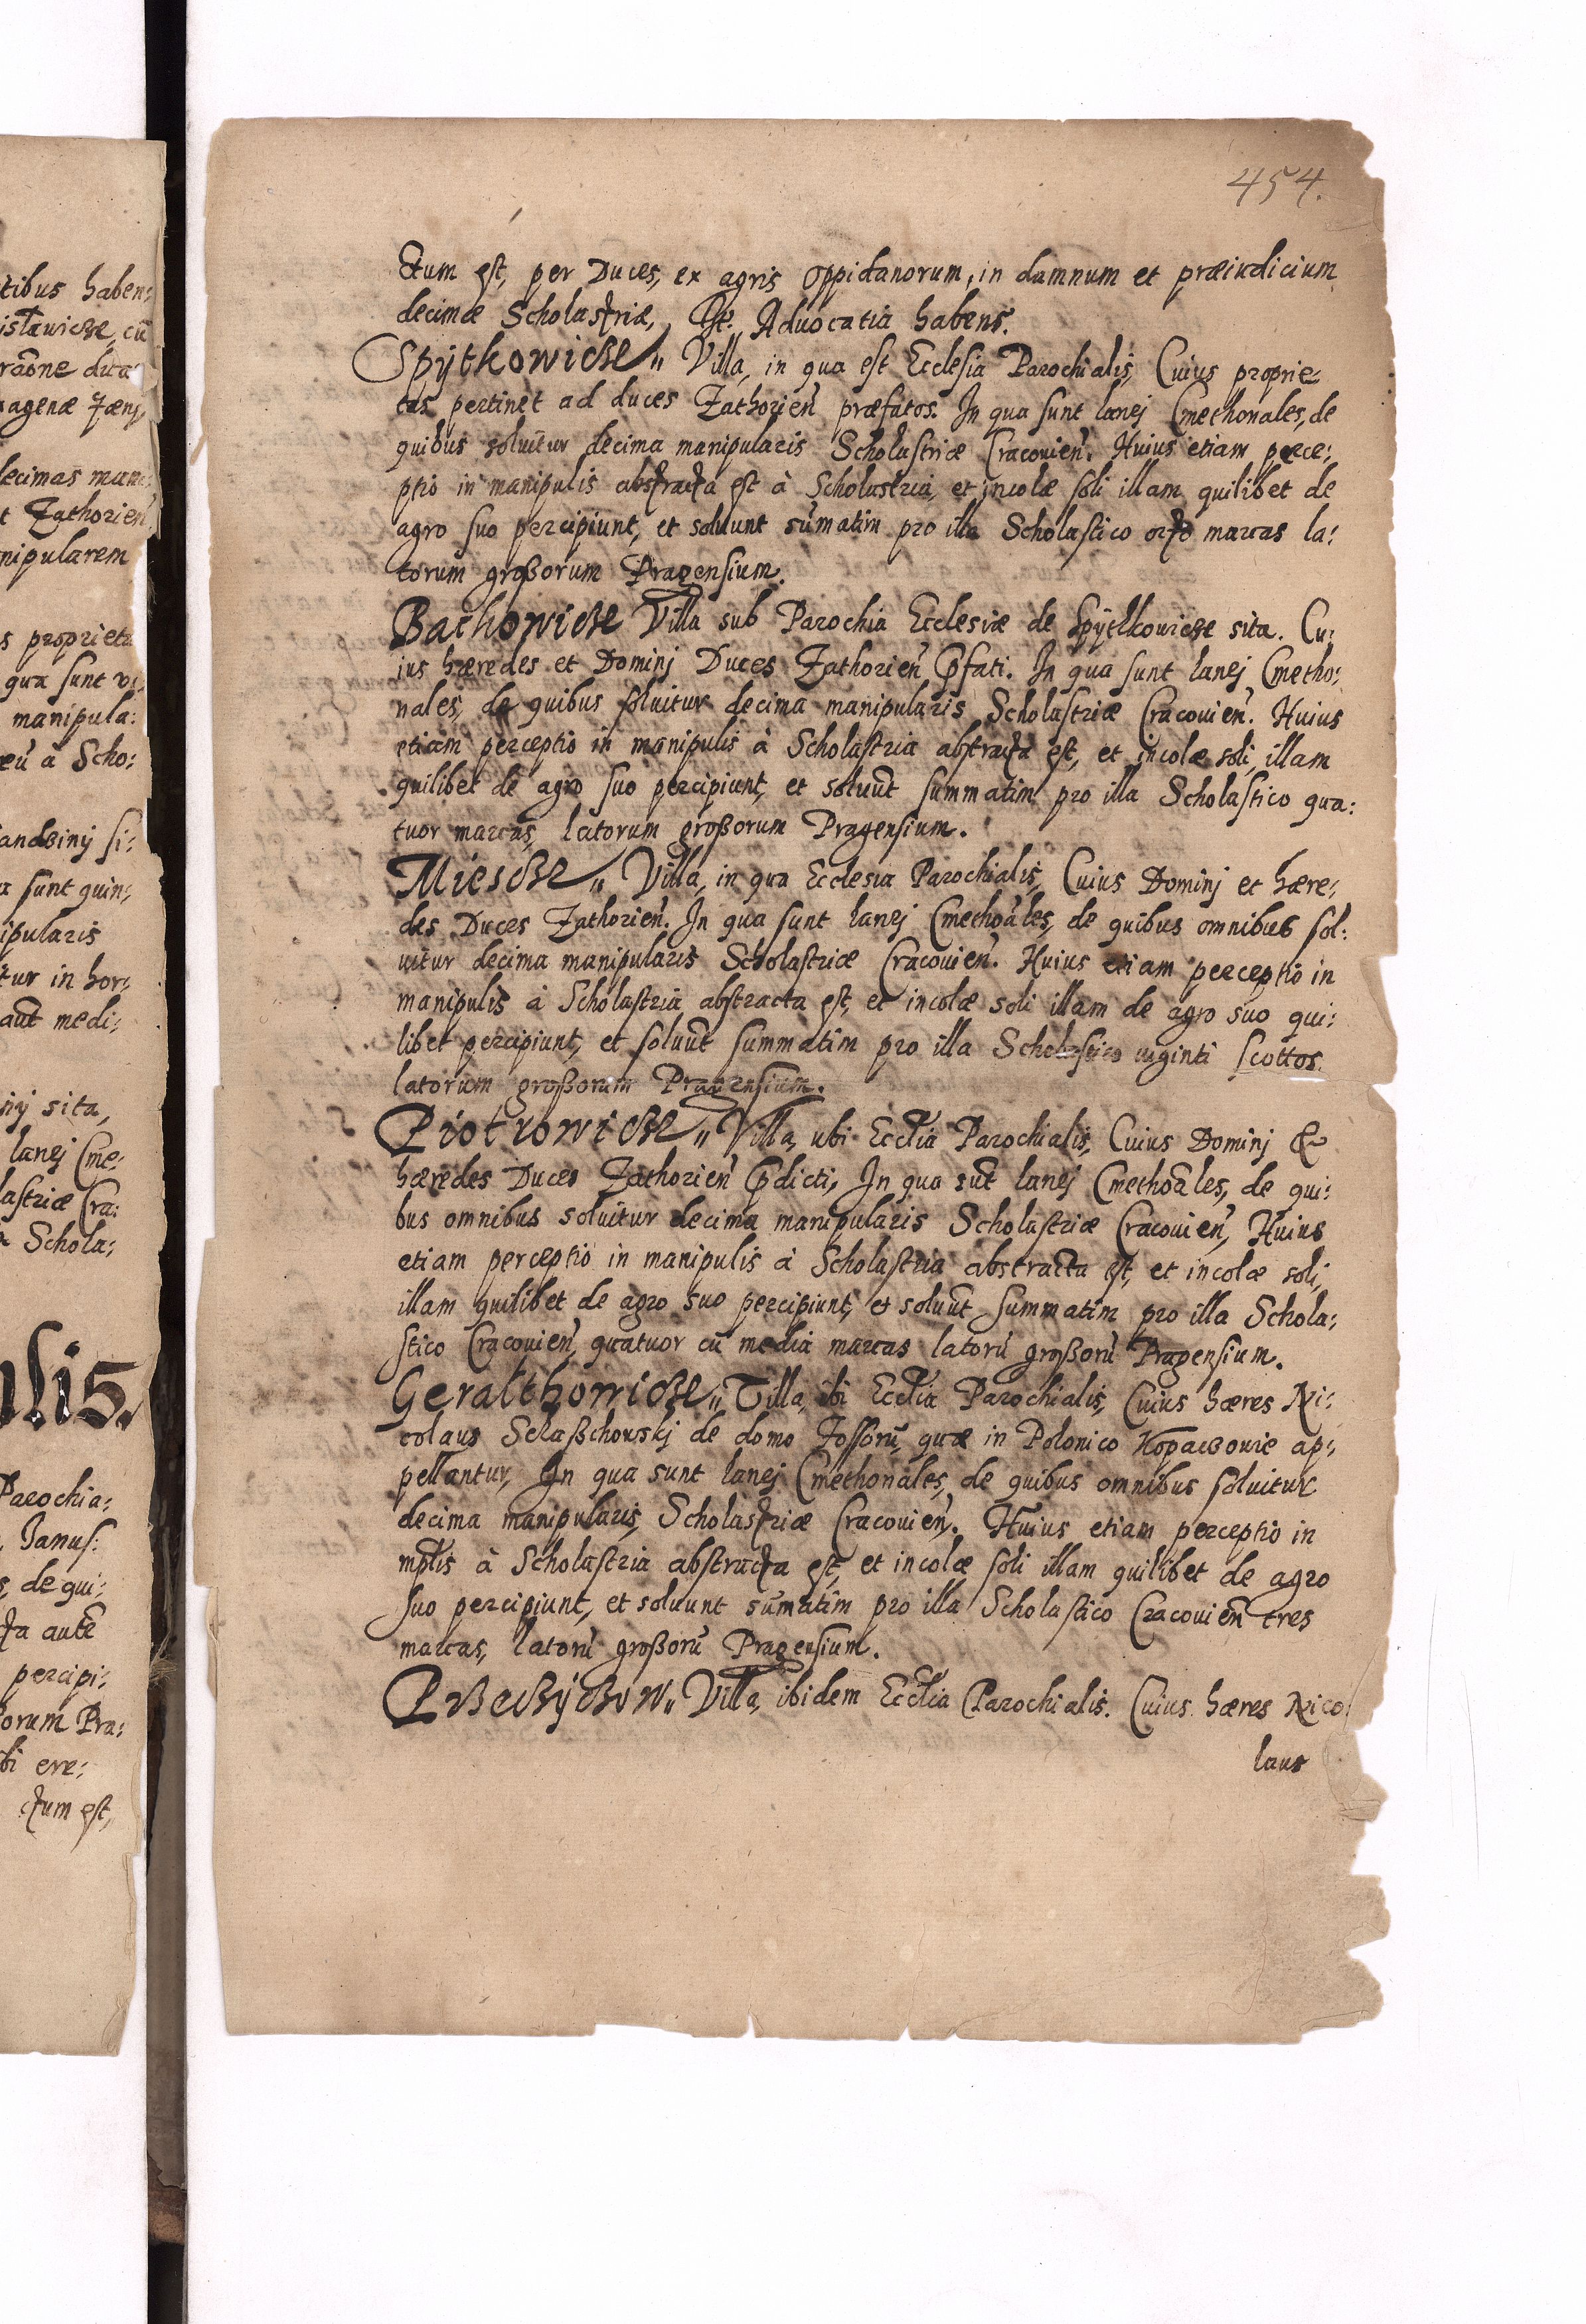 tibus haben:
islawicze, cũ
raõne dita
agenæ Jæni,
decimas mani:
t Zathorien̄
nipularem
s proprieta
qua sunt vi:
manipula:
eũ à Scho:
andzinj si:
a sunt quin:
ipularis
tur in hor:
aut̃ medi:
nij sita,
lanej Cme:
lastriæ Cra:
Schola:
alis.
Parochia:
Janus:
s, de qui:
cta autẽ
percipi:
orum Pra:
ibi ere:
ctum est,
454.
ctum est, per Duces, ex agris Oppidanorum, in damnum et præiudicium
decimæ Scholastriæ, It. Advocatia habens.
Spÿtkowicze,, Villa, in qua est Ecclesia Parochialis, Cuius proprie:
tas pertinet ad duces Zathorien̄ præfatos. In qua sunt lanej Cmethonales, de
quibus soluitur decima manipularis Scholastriæ Cracouien̄. Huius etiam perce:
ptio in manipulis abstracta est à Scholastria, et incolæ soli illam quilibet de
agro suo percipiunt, et soluunt sum̄atim pro illa Scholastico octo marcas la:
torum großorum Pragensium.
Bachowicze Villa sub Parochia Ecclesiæ de Spÿthkouicze sita. Cu:
ius hæredes et Dominj Duces Zathorien̄ p̄fati. In qua sunt lanej Cmetho:
nales, de quibus soluitur decima manipularis Scholastriæ Cracouien̄. Huius
etiam perceptio in manipulis à Scholastria abstracta est, et incolæ soli, illam
quilibet de agro suo percipiunt, et soluũt summatim pro illa Scholastico qua:
tuor marcas, latorum großorum Pragensium.
Miescze,, Villa, in qua Ecclesia Parochialis, Cuius Dominj et hære:
des Duces Zathorien̄. In qua sunt lanej Cmethoñales, de quibus omnibus sol:
uitur decima manipularis Scholastriæ Cracouien̄. Huius etiam perceptio in
manipulis à Scholastria abstracta est, et incolæ soli illam de agro suo qui:
libet percipiunt, et soluũt summatim pro illa Scholastico viginti scottos
latorum großorum Pragensium.
Piotrowicze,, Villa, ubi Ecctia Parochialis, Cuius Dominj &
hæredes Duces Zathorien̄ p̄dicti, In qua sũt lanej Cmethoãles, de qui:
bus omnibus soluitur decima manipularis Scholastriæ Cracouien̄, Huius
etiam perceptio in manipulis à Scholastria abstracta est, et incolæ soli,
illam quilibet de agro suo percipiunt, et soluũt summatim pro illa Schola:
stico Cracouien̄, quatuor cũ media marcas latorũ großorũ Pragensium.
Geralthowicze,, Villa, ibi Ecctia Parochialis, Cuius hæres Ni:
colaus Schaßchowskj de domo Fossorũ, quæ in Polonico Kopaczowie ap:
pellantur, In qua sunt lanej Cmethonales, de quibus omnibus soluitur
decima manipularis, Scholastriæ Cracouien̄. Huius etiam perceptio in
mp̃lis à Scholastria abstracta est, et incolæ soli illam quilibet de agro
suo percipiunt, et soluunt sum̄atim pro illa Scholastico Cracouien̄ tres
marcas, latorũ großorũ Pragensium.
Przeczÿczow,, Villa, ibidem Ecctia Parochialis. Cuius hæres Nico
laus